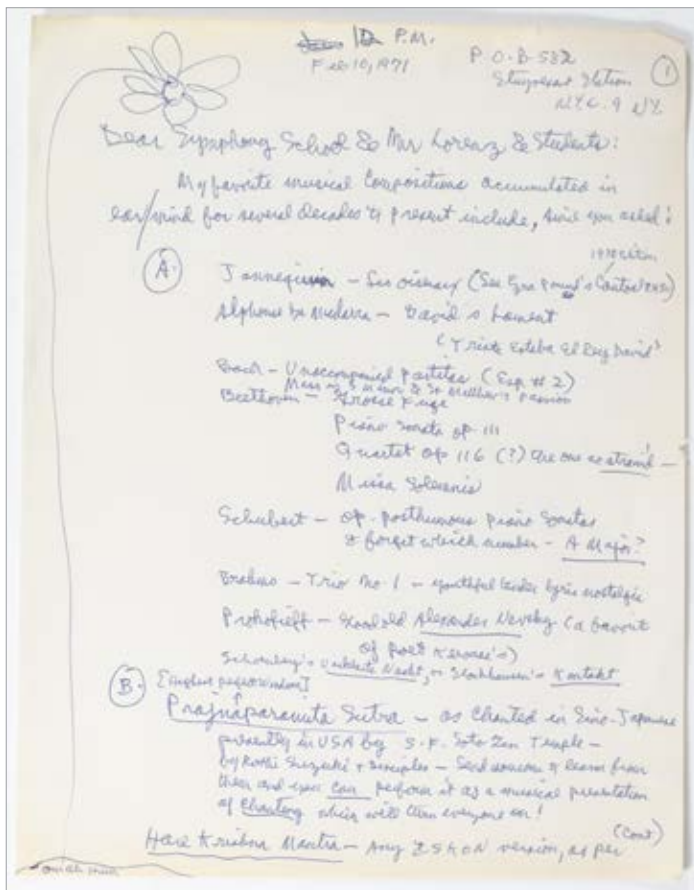 12 P.M.
Feb 10, 1971
P.O.B 582
Stuyvesant Station
N.Y.C. 9 NY
1
Dear Symphony School & Mr Lorenz & Students:
My favorite musical compositions accumulated in
ear/mind for several decades to present include, since you asked:
A.
Jannequin – Les oiseaux (See Ezra Pound's Cantos
Alphonse de Mudarra – David's Lament
("Triste Estaba El Rey David"
Bach – Unaccompanied Partitas (Esp. #2)
Mass in B Minor & St Matthew's Passion
Beethoven – Grosse Fuge
Piano Sonata op 111
Quartet op 116 (?)
Missa Solemnis
Schubert – op. posthumous piano Sonatas
I forget which number – A Major?
Brahms – Trio No 1 – youthful tender lyric nostalgic
Prokofieff – Alexander Nevsky (a favorite
of poet Kerouac's)
Schonberg's Verklarte Nacht, or Stockhausen's Kontakt
B.
[Highest perfect wisdom]
Prajnaparamita Sutra – as Chanted in Sino-Japanese
presently in USA by S.F. Soto Zen Temple –
by Roshi Suzuki & Disciples – Send someone to learn from
them and you can perform it as a musical presentation
of Chanting which will turn everyone on!
(Cont)
Hare Krishna Mantra – Any ISKON version, as per